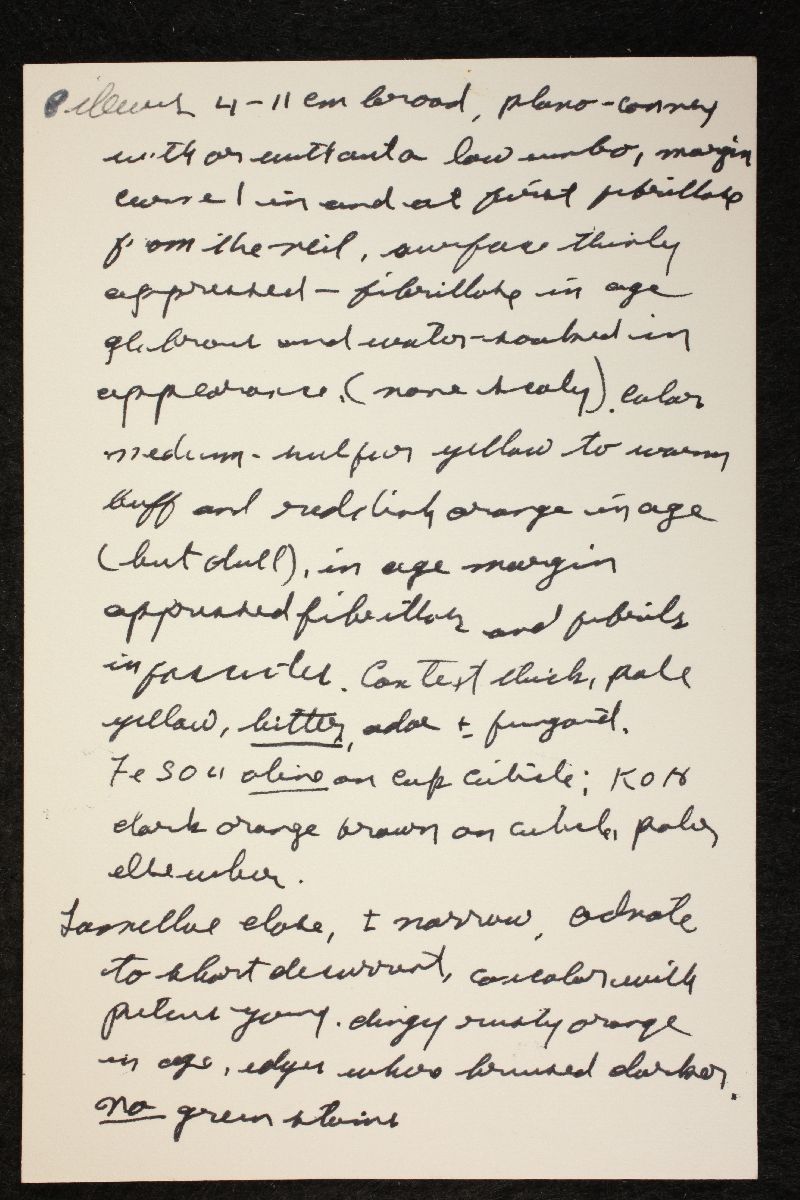 Pileus 4-11 cm broad, plano-convex
with or without a low umbo, margin
curved in and at first fibrillose
from the veil, surface thinly
appressed-fibrillose in age
glabrous and water-soaked in
appearance. (none scaly). Color
medium-sulfur yellow to warm
buff and reddish orange in age
(but dull), in age margin
appressed fibrillose and fibrils
in fascicles. Context thick, pale
yellow, bitter, odor ± fungoid.
FeSO4 olive on cap cuticle; KOH
dark orange brown on cuticle, paler
elsewhere.
Lamellae close, ± narrow, adnate
to short decurrent, concolor with
pileus young. dingy rusty orange
in age, edges where bruised darker.
no green stains